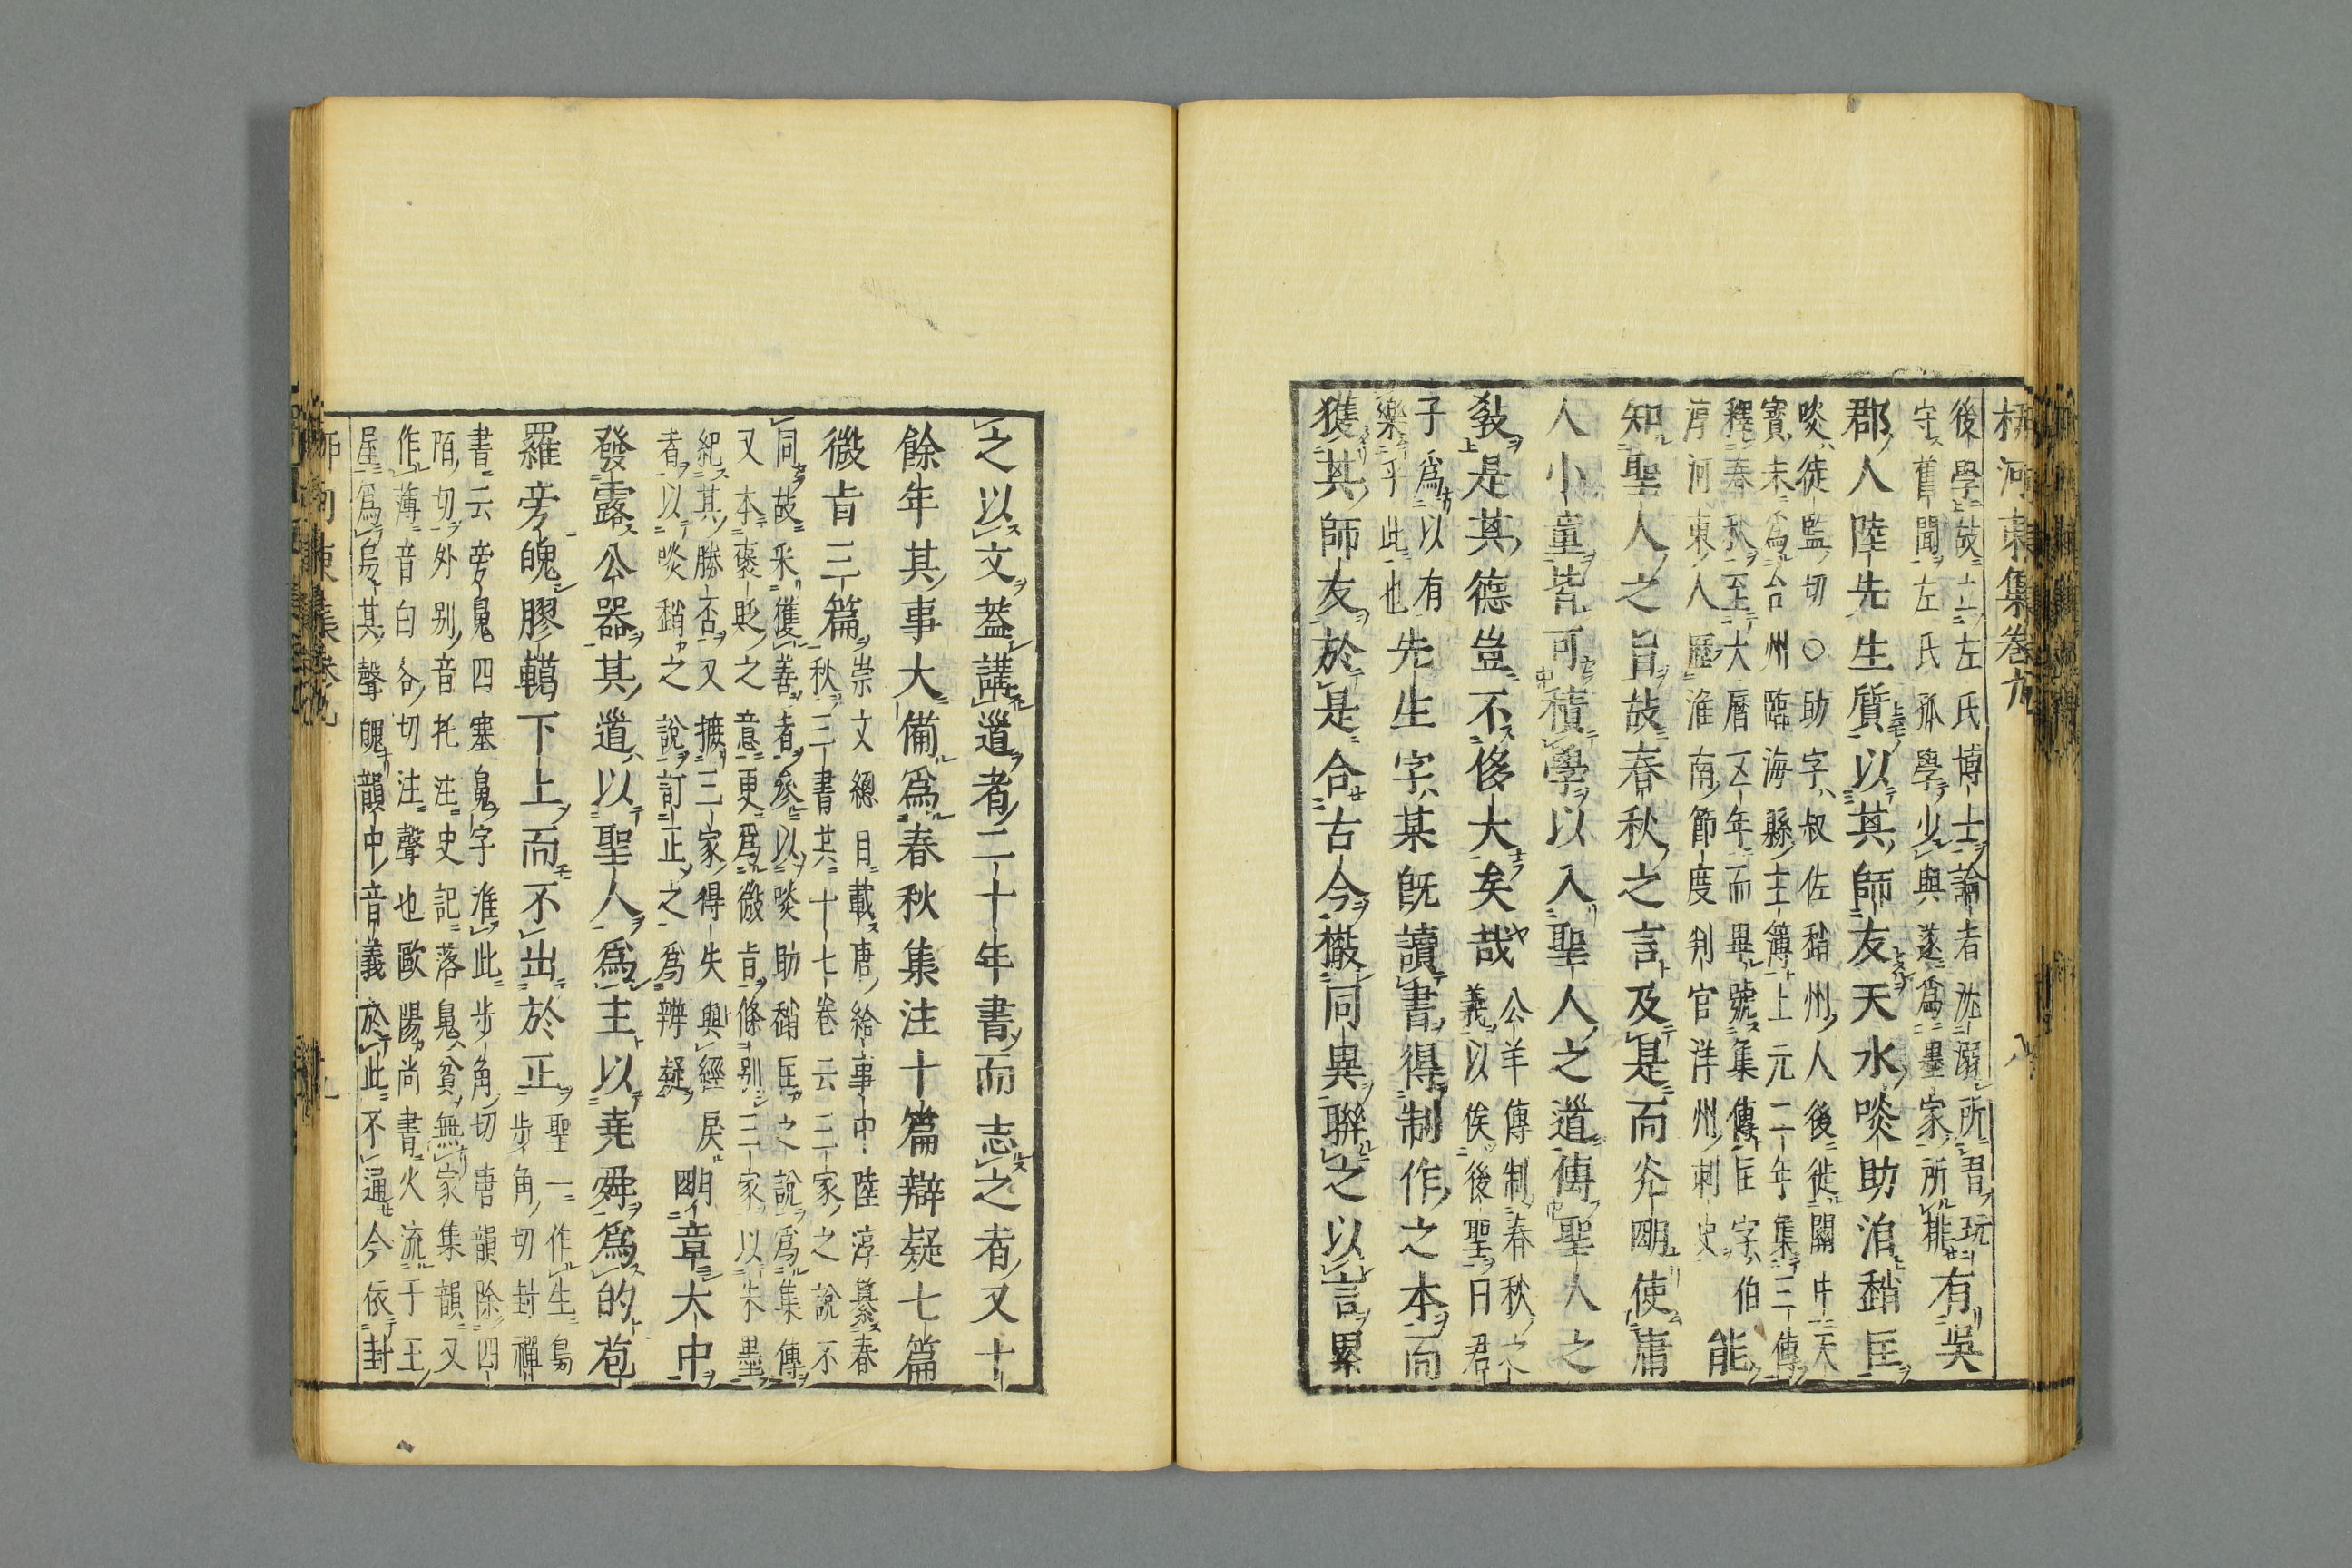 柳河東集卷九 八
後學故立左氏博士論者沈溺所習玩
守舊聞左氏孤學少與遂爲墨家所排
有吳
郡人陸先生質以其師友天水啖助洎趙匡
啖徒監切○助字叔佐趙州人後徙關中天
寶末爲台州臨海縣主簿上元二年集三傳
釋春秋至大曆五年而畢號集傳匡字伯
淳河東人歷淮南節度判官洋州刺史
能
知聖人之旨故春秋之言及是而光明使庸
人小童皆可積學以入聖人之道傳聖人之
敎是其德豈不侈大矣哉
公羊傳制春秋之
義以俟後聖曰君
子爲以有
樂乎此也
先生字某既讀書得制作之本而
獲其師友於是合古今散同異聯之以言累
之以文蓋講道者二十年書而志之者又十
餘年其事大備爲春秋集注十篇辯疑七篇
微旨三篇
崇文總目載唐給事中陸淳纂春
秋三書共十七卷云三家之說不
同故采獲善者參以啖助趙匡之說爲集傳
又本褒貶之意更爲微旨條別三家以朱墨
紀其勝否又摭三家得失與經戾
者以啖趙之說訂正之爲辨疑
明章大中
發露公器其道以聖人爲主以堯舜爲的苞
羅旁魄膠轕下上而不出於正
聖一作生鳥
步角切封禪
書云旁魄四塞魄字准此步角切唐韻除四
陌切外別音托注史記落魄貧無家集韻又
作薄音白各切注聲也歐陽尚書火流于王
屋爲烏其聲魄韻中音義於此不通今依封